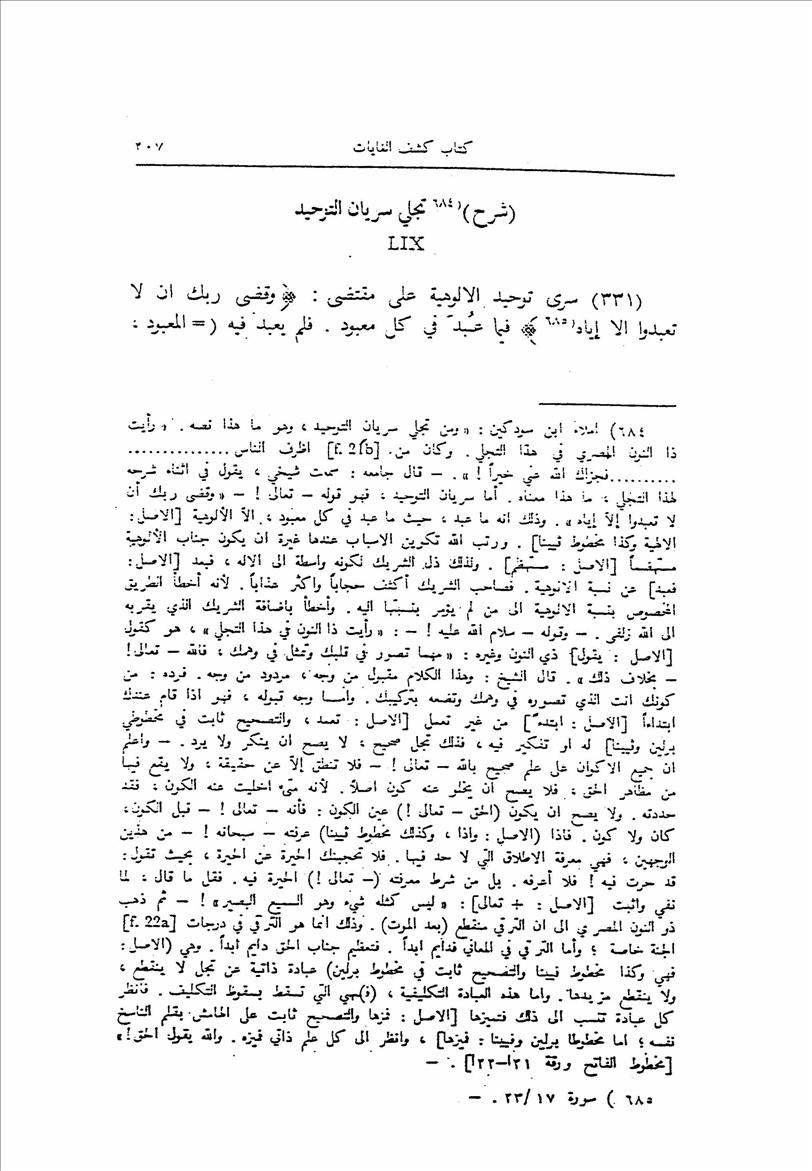 كتاب كشف الغايات ٤٠٧
(شرح)٦٨٤) تجلي سريان التوحيد
LIX
(٣٣١) سرى توحيد الالوهية على مقتضى : ﴿ وقضى ربك ان لا
تعبدوا الا إياه٦٨٥) ﴾ فيما عُبدَ في كل معبود . فلم يعبد فيه (= المعبود ؛
٦٨٤) املاء ابن سودكين : «ومن تجلي سريان التوحيد ، وهو ما هذا نصه . «رأيت
ذا النون المصري في هذا التجلي . وكان من [f. 21b] اظرف الناس ...............
...........فجزاك الله عني خيراً ! » . – قال جامعه : سمعت شيخي ، يقول في اثناء شرحه
لهذا التجلي ، ما هذا معناه . أما سريان التوحيد ، فهو قوله – تعالى ! – «وقضى ربك أن
لا تعبدوا إلا إياه» . وذلك انه ما عبد ، حيث ما عبد في كل معبود ، الا الألوهية [الاصل :
الالهية وكذا مخطوط فيينا] . ورتب الله تكوين الاسباب عندها غيرة ان يكون جناب الألوهية
مستهضماً [الاصل : مستهضم] . ولذلك ذل الشريك لكونه واسطة الى الاله ، فبعد [الاصل :
فعبد] عن نسبة الالوهية . فصاحب الشريك أكثف حجاباً واكثر عذاباً . لأنه أخطأ الطريق
المخصوص بنسبة الالوهية الى من لم يؤمر بنسبتها اليه . وأخطأ باضافة الشريك الذي يقربه
الى الله زلفى . – وقوله – سلام الله عليه ! – : «رأيت ذا النون في هذا التجلي» ، هو كقول
[الاصل : يقول] ذي النون وغيره : «مهما تصور في قلبك وتمثل في وهمك ، فالله – تعالى !
– بخلاف ذلك» . قال الشيخ : وهذا الكلام مقبول من وجه ، مردود من وجه . فرده : من
كونك انت الذي تصوره في وهمك وتضعه بتركيبك . وأما وجه قبوله ، فهو اذا قام عندك
ابتداءاً [الاصل : ابتدءً] من غير تعمل [الاصل : تعمد ، والتصحيح ثابت في مخطوطي
برلين وفيينا] له او تفكير فيه ، فذلك تجل صحيح ، لا يصح ان ينكر ولا يرد . – واعلم
ان جميع الاكوان على علم صحيح بالله – تعالى ! – فلا تنطق إلا عن حقيقة ، ولا يقع فيها
من مظاهر الحق ؛ فلا يصح أن يخلو عنه كون اصلاً . لأنه متى اخليت عنه الكون ؛ فقد
حددته . ولا يصح ان يكون (الحق – تعالى !) عين الكون : فأنه – تعالى ! – قبل الكون ،
كان ولا كون . فاذا (الاصل : واذا ، وكذلك مخطوط فيينا) عرفته – سبحانه ! – من هذين
الوجهين ، فهي معرفة الاطلاق التي لا حد فيها . فلا تحجبنك الحيرة عن الحيرة ، بحيث تقول :
قد حرت فيه ! فلا أعرفه . بل من شرط معرفته (– تعالى !) الحيرة فيه . فقل ما قال ، لما
نفى واثبت [الاصل : + تعالى] : «ليس كمثله شيء وهو السميع البصير» ! – ثم ذهب
ذو النون المصري الى ان الترقي منقطع (بعد الموت) . وذلك انما هو الترقي في درجات [f. 22a]
الجنة خاصة ؛ وأما الترقي في المعاني فدائم ابداً . فتعظيم جناب الحق دايم أبداً . وهي (الاصل :
فهي وكذا مخطوط فيينا والتصحيح ثابت في مخطوط برلين) عبادة ذاتية عن تجل لا ينقطع ،
ولا ينقطع مزيدها . واما هذه العبادة التكليفية ، (ف)هي التي تسقط بسقوط التكليف . فانظر
كل عبادة تنسب الى ذلك فتميزها [الاصل : فزها والتصحيح ثابت على الهامش بقلم الناسخ
نفسه ؛ اما مخطوطا برلين وفيينا : فيزها] ، وانظر الى كل علم ذاتي فيزه . والله يقول الحق ! »
[مخطوط الفاتح ورقة ٢١ا–٢٢ا] . –
٦٨٥) سورة ١٧ /٢٣ . –